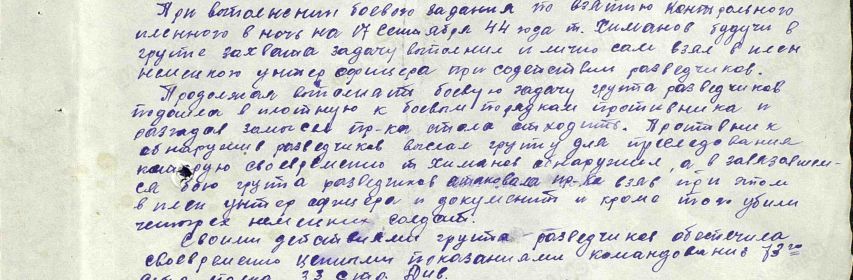 При выполнении боевого задания по взятию контрольного
пленного в ночь на 17 сентября 44 года т. Химанов будучи в
группе захвата задачу выполнил и лично сам взял в плен
немецкого унтер офицера при содействии разведчиков.
Продолжая выполнять боевую задачу группа разведчиков
подошла в плотную к боевым порядкам противника и
разгадав замысел пр-ка стала отходить. Противник
обнаружив разведчиков выслал группу для преследования
которую своевременно т Химанов обнаружил, а в завязавшем-
ся бою группа разведчиков атаковала пр-ка взяв при этом
в плен унтер офицера и документы и кроме того убили
четырех немецких солдат.
Своими действиями группа разведчиков обеспечила
своевременно ценными показаниями командование 73го
стр. полка 33 стр. Див.